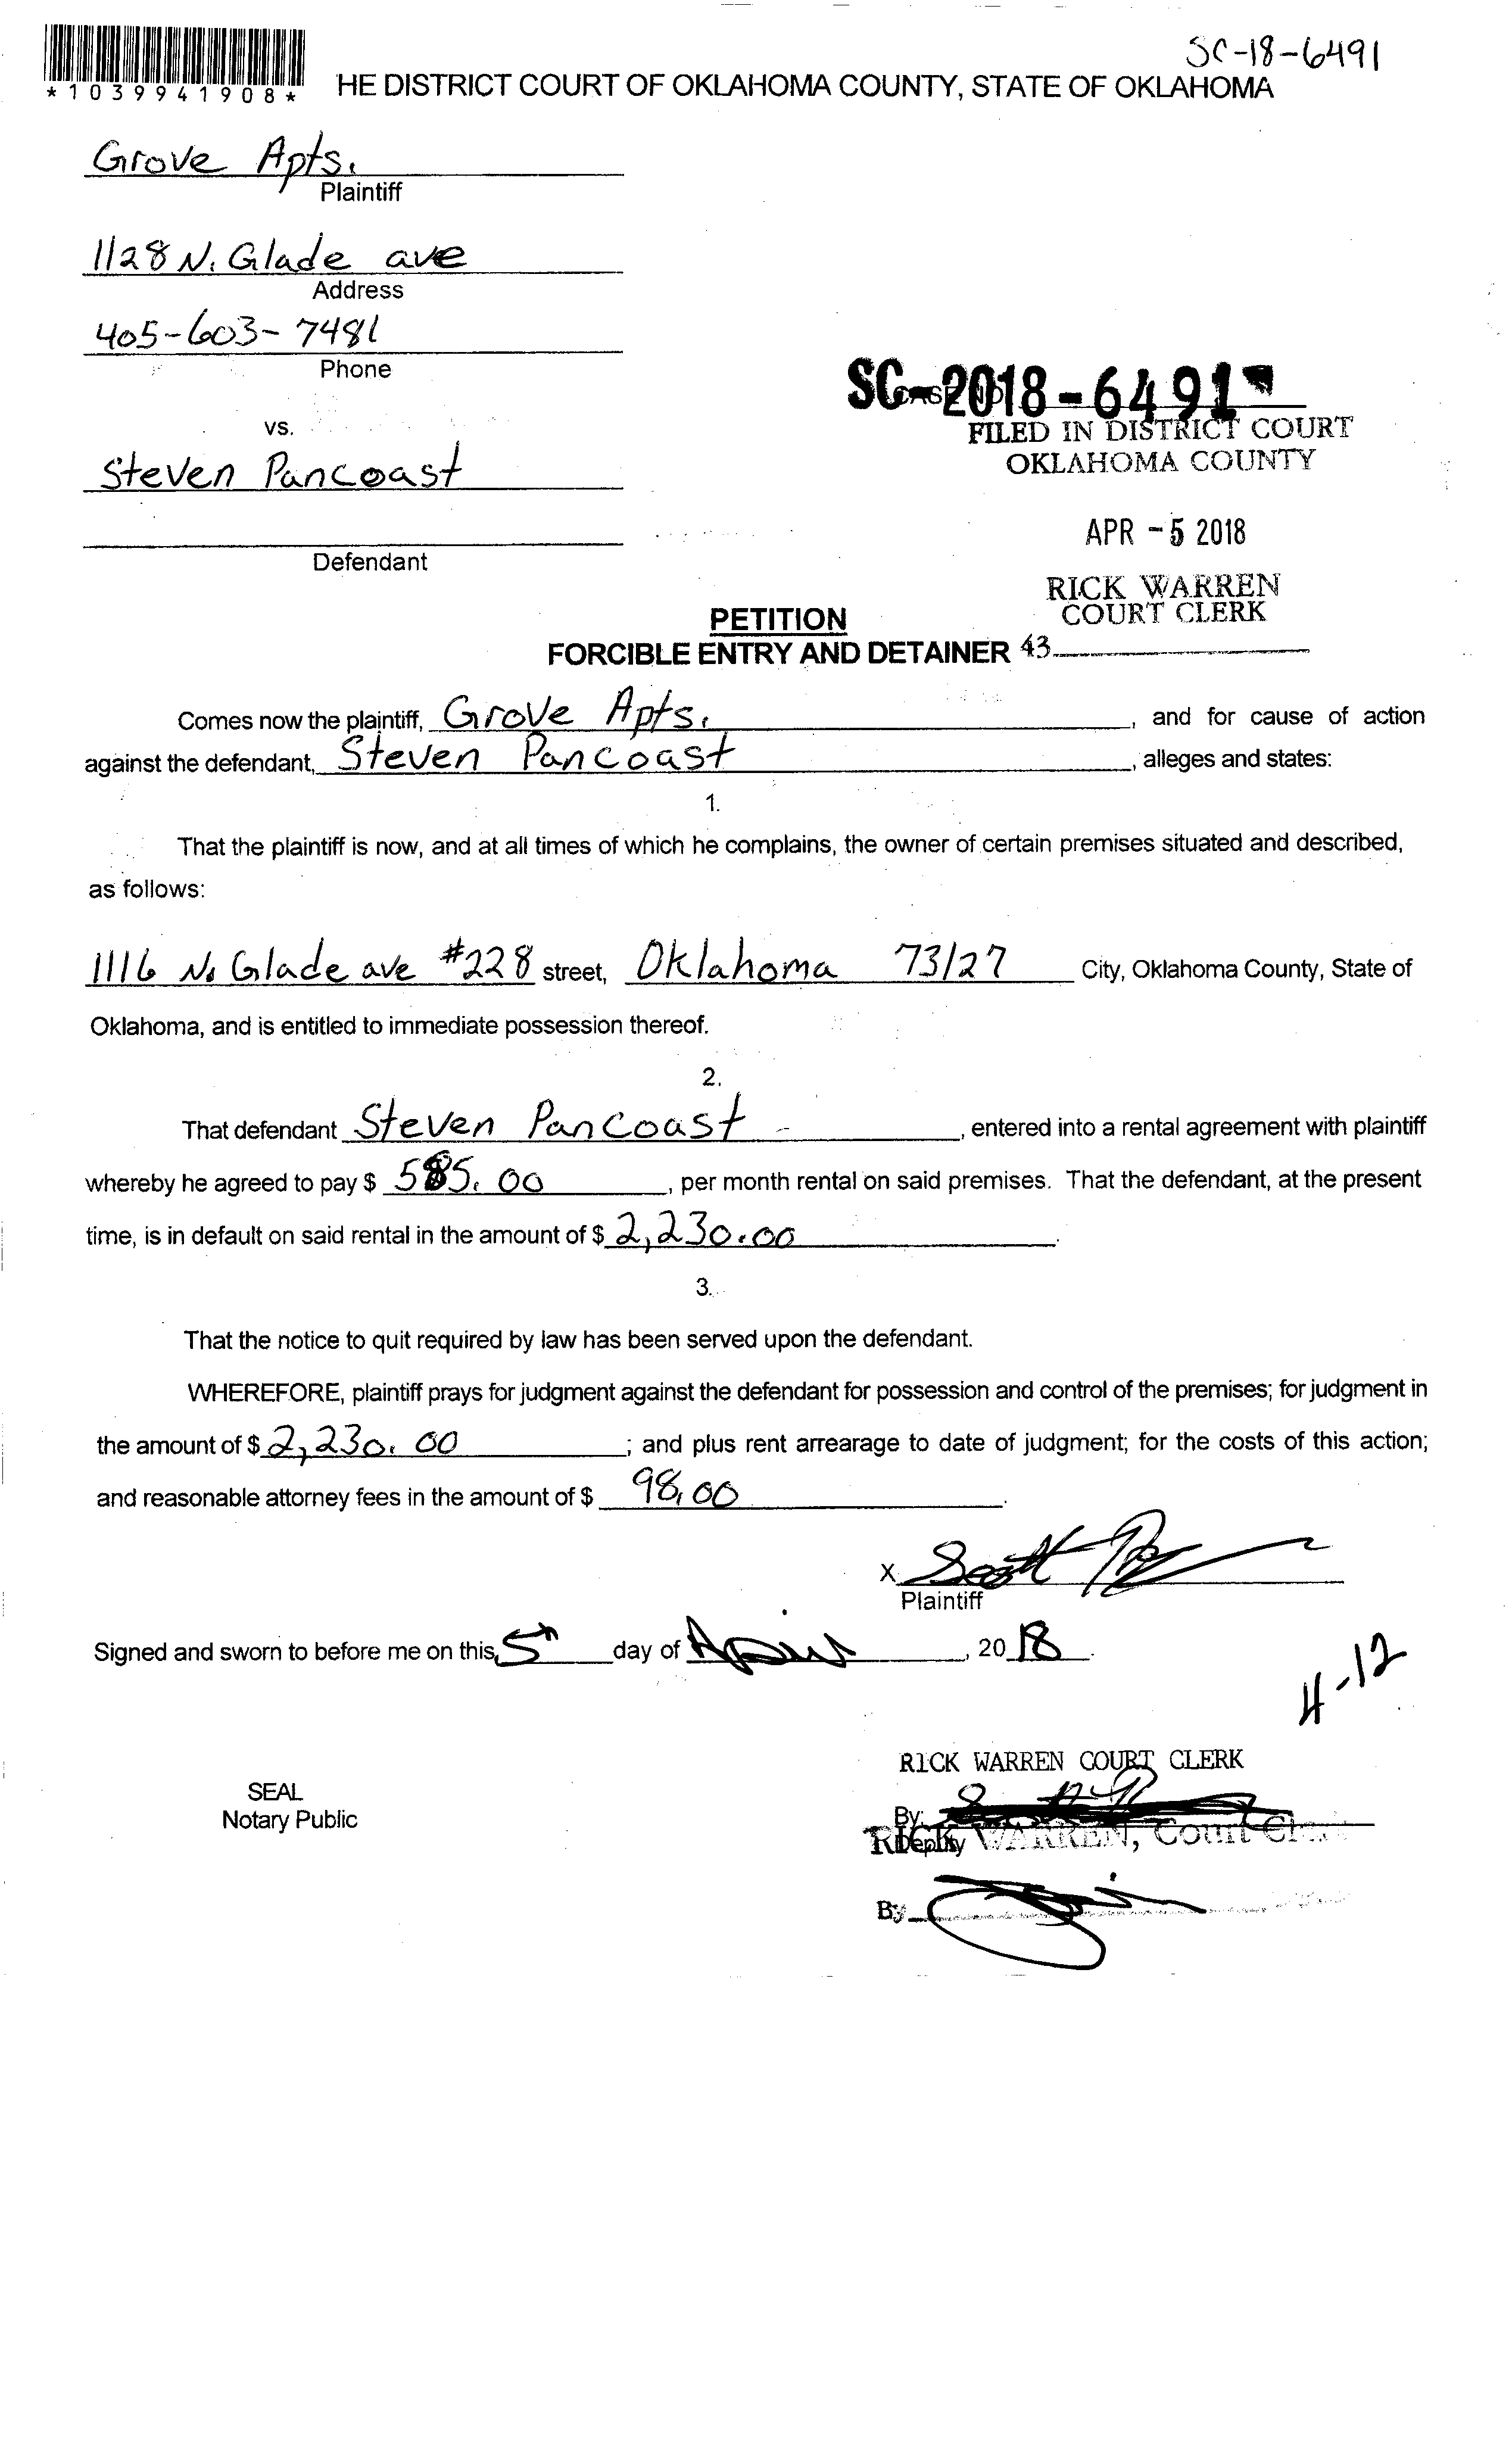 SC-18-6491
*1039941908*
HE DISTRICT COURT OF OKLAHOMA COUNTY, STATE OF OKLAHOMA
Grove Apts.
Plaintiff
1128 N. Glade ave
Address
405-603-7481
Phone
SC-2018-6491
FILED IN DISTRICT COURT
OKLAHOMA COUNTY
vs.
Steven Pancoast
APR -5 2018
Defendant
RICK WARREN
COURT CLERK
PETITION
FORCIBLE ENTRY AND DETAINER 43
Comes now the plaintiff, Grove Apts. , and for cause of action
against the defendant, Steven Pancoast , alleges and states:
1.
That the plaintiff is now, and at all times of which he complains, the owner of certain premises situated and described,
as follows:
1116 N. Glade ave #228 street, Oklahoma 73127 City, Oklahoma County, State of
Oklahoma, and is entitled to immediate possession thereof.
2.
That defendant Steven Pancoast - , entered into a rental agreement with plaintiff
whereby he agreed to pay $ 585.00 , per month rental on said premises. That the defendant, at the present
time, is in default on said rental in the amount of $ 2,230.00 .
3.
That the notice to quit required by law has been served upon the defendant.
WHEREFORE, plaintiff prays for judgment against the defendant for possession and control of the premises; for judgment in
the amount of $ 2,230.00 ; and plus rent arrearage to date of judgment; for the costs of this action;
and reasonable attorney fees in the amount of $ 98.00 .
X Scott
Plaintiff
Signed and sworn to before me on this 5th day of April , 2018.
4-12
RICK WARREN COURT CLERK
SEAL
Notary Public
By:
Deputy
RICK WARREN, Court Clerk
By